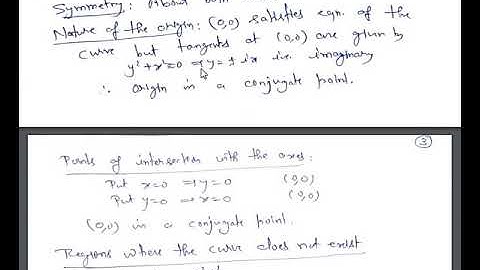 Symmetry: About both
Nature of the origin: (0,0) satisfies eqn. of the
curve but tangents at (0,0) are given by
y²+x²=0 ⇒ y=±ix i.e. imaginary
∴ origin in a conjugate point.
3
Points of intersection with the axes:
Put x=0 ⇒ y=0 (0,0)
Put y=0 ⇒ x=0 (0,0)
(0,0) in a conjugate point.
Regions where the curve does not exist